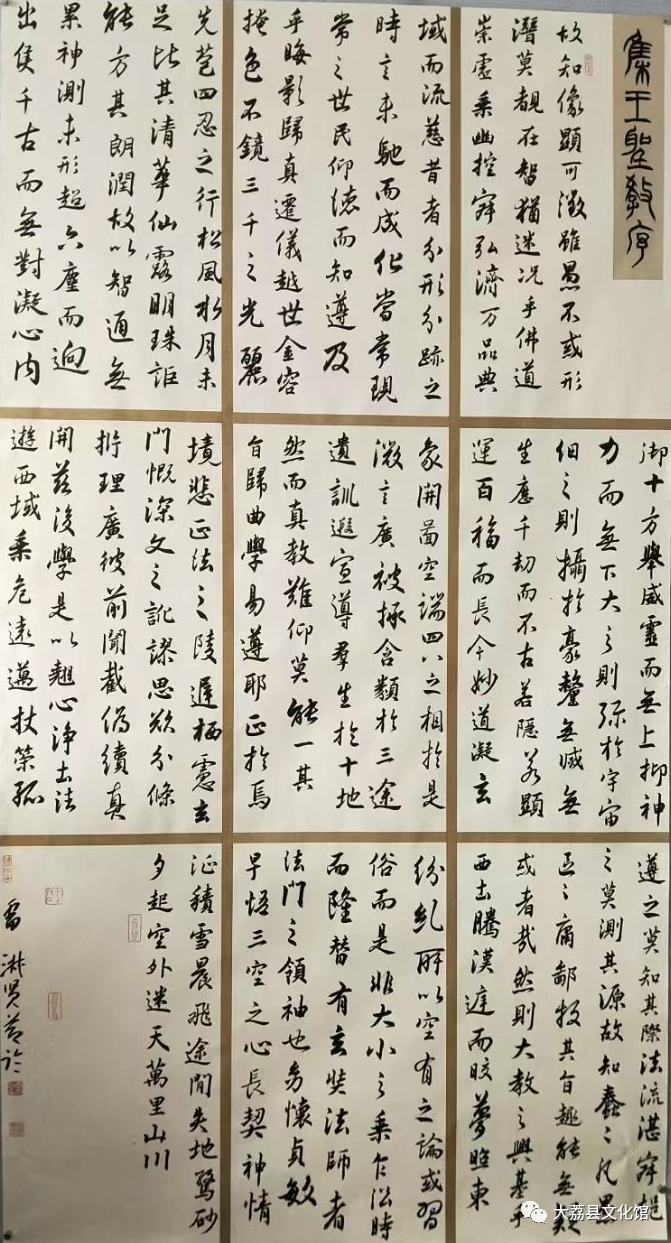 集王聖教序
故知像顯可徵雖愚不或形
潛莫覩在智猶迷况乎佛道
崇虛乘幽控寂弘濟万品典
御十方舉威靈而無上抑神
力而無下大之則弥於宇宙
細之則攝於豪釐無滅無
生應千劫而不古若隱若顯
運百福而長今妙道凝玄
遵之莫知其際法流湛寂挹
之莫測其源故知蠢〻凡愚
區〻庸鄙投其旨趣能無疑
或者哉然則大教之興基乎
西土騰漢庭而皎夢照東
域而流慈昔者分形分跡之
時言未馳而成化當常現
常之世民仰德而知遵及
乎晦影歸真遷儀越世金容
掩色不鏡三千之光麗
象開啚空端四八之相於是
微言廣被拯含類於三途
遺訓遐宣導羣生於十地
然而真教難仰莫能一其
旨歸曲學易遵耶正於焉
紛糺所以空有之論或習
俗而是非大小之乘乍沿時
而隆替有玄奘法師者
法門之領袖也幼懷貞敏
早悟三空之心長契神情
先苞四忍之行松風水月未
足比其清華仙露明珠詎
能方其朗潤故以智通無
累神測未形超六塵而迥
出隻千古而無對凝心内
境悲正法之陵遲栖慮玄
門慨深文之訛謬思欲分條
析理廣彼前聞截僞續真
開茲後學是以翹心淨土法
遊西域乘危遠邁杖策孤
征積雪晨飛途閒失地驚砂
夕起空外迷天萬里山川
大荔县文化馆